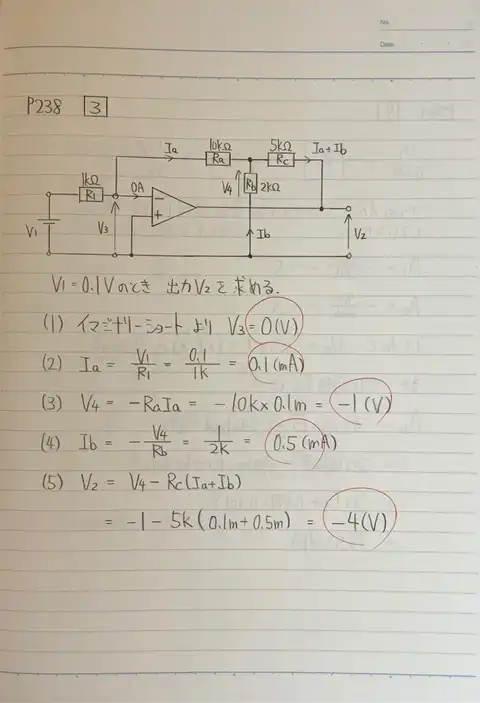 No.
Date
P238 3
Ia 10kΩ 5kΩ Ia+Ib
Ra Rc
1kΩ 0A V4 Rb 2kΩ
R1 − +
V1 V3 Ib V2
V1=0.1Vのとき 出力V2を求める.
(1) イマジナリーショートより V3=0(V)
(2) Ia = V1/R1 = 0.1/1k = 0.1(mA)
(3) V4 = −RaIa = −10k×0.1m = −1(V)
(4) Ib = −V4/Rb = 1/2k = 0.5(mA)
(5) V2 = V4−Rc(Ia+Ib)
= −1−5k(0.1m+0.5m) = −4(V)